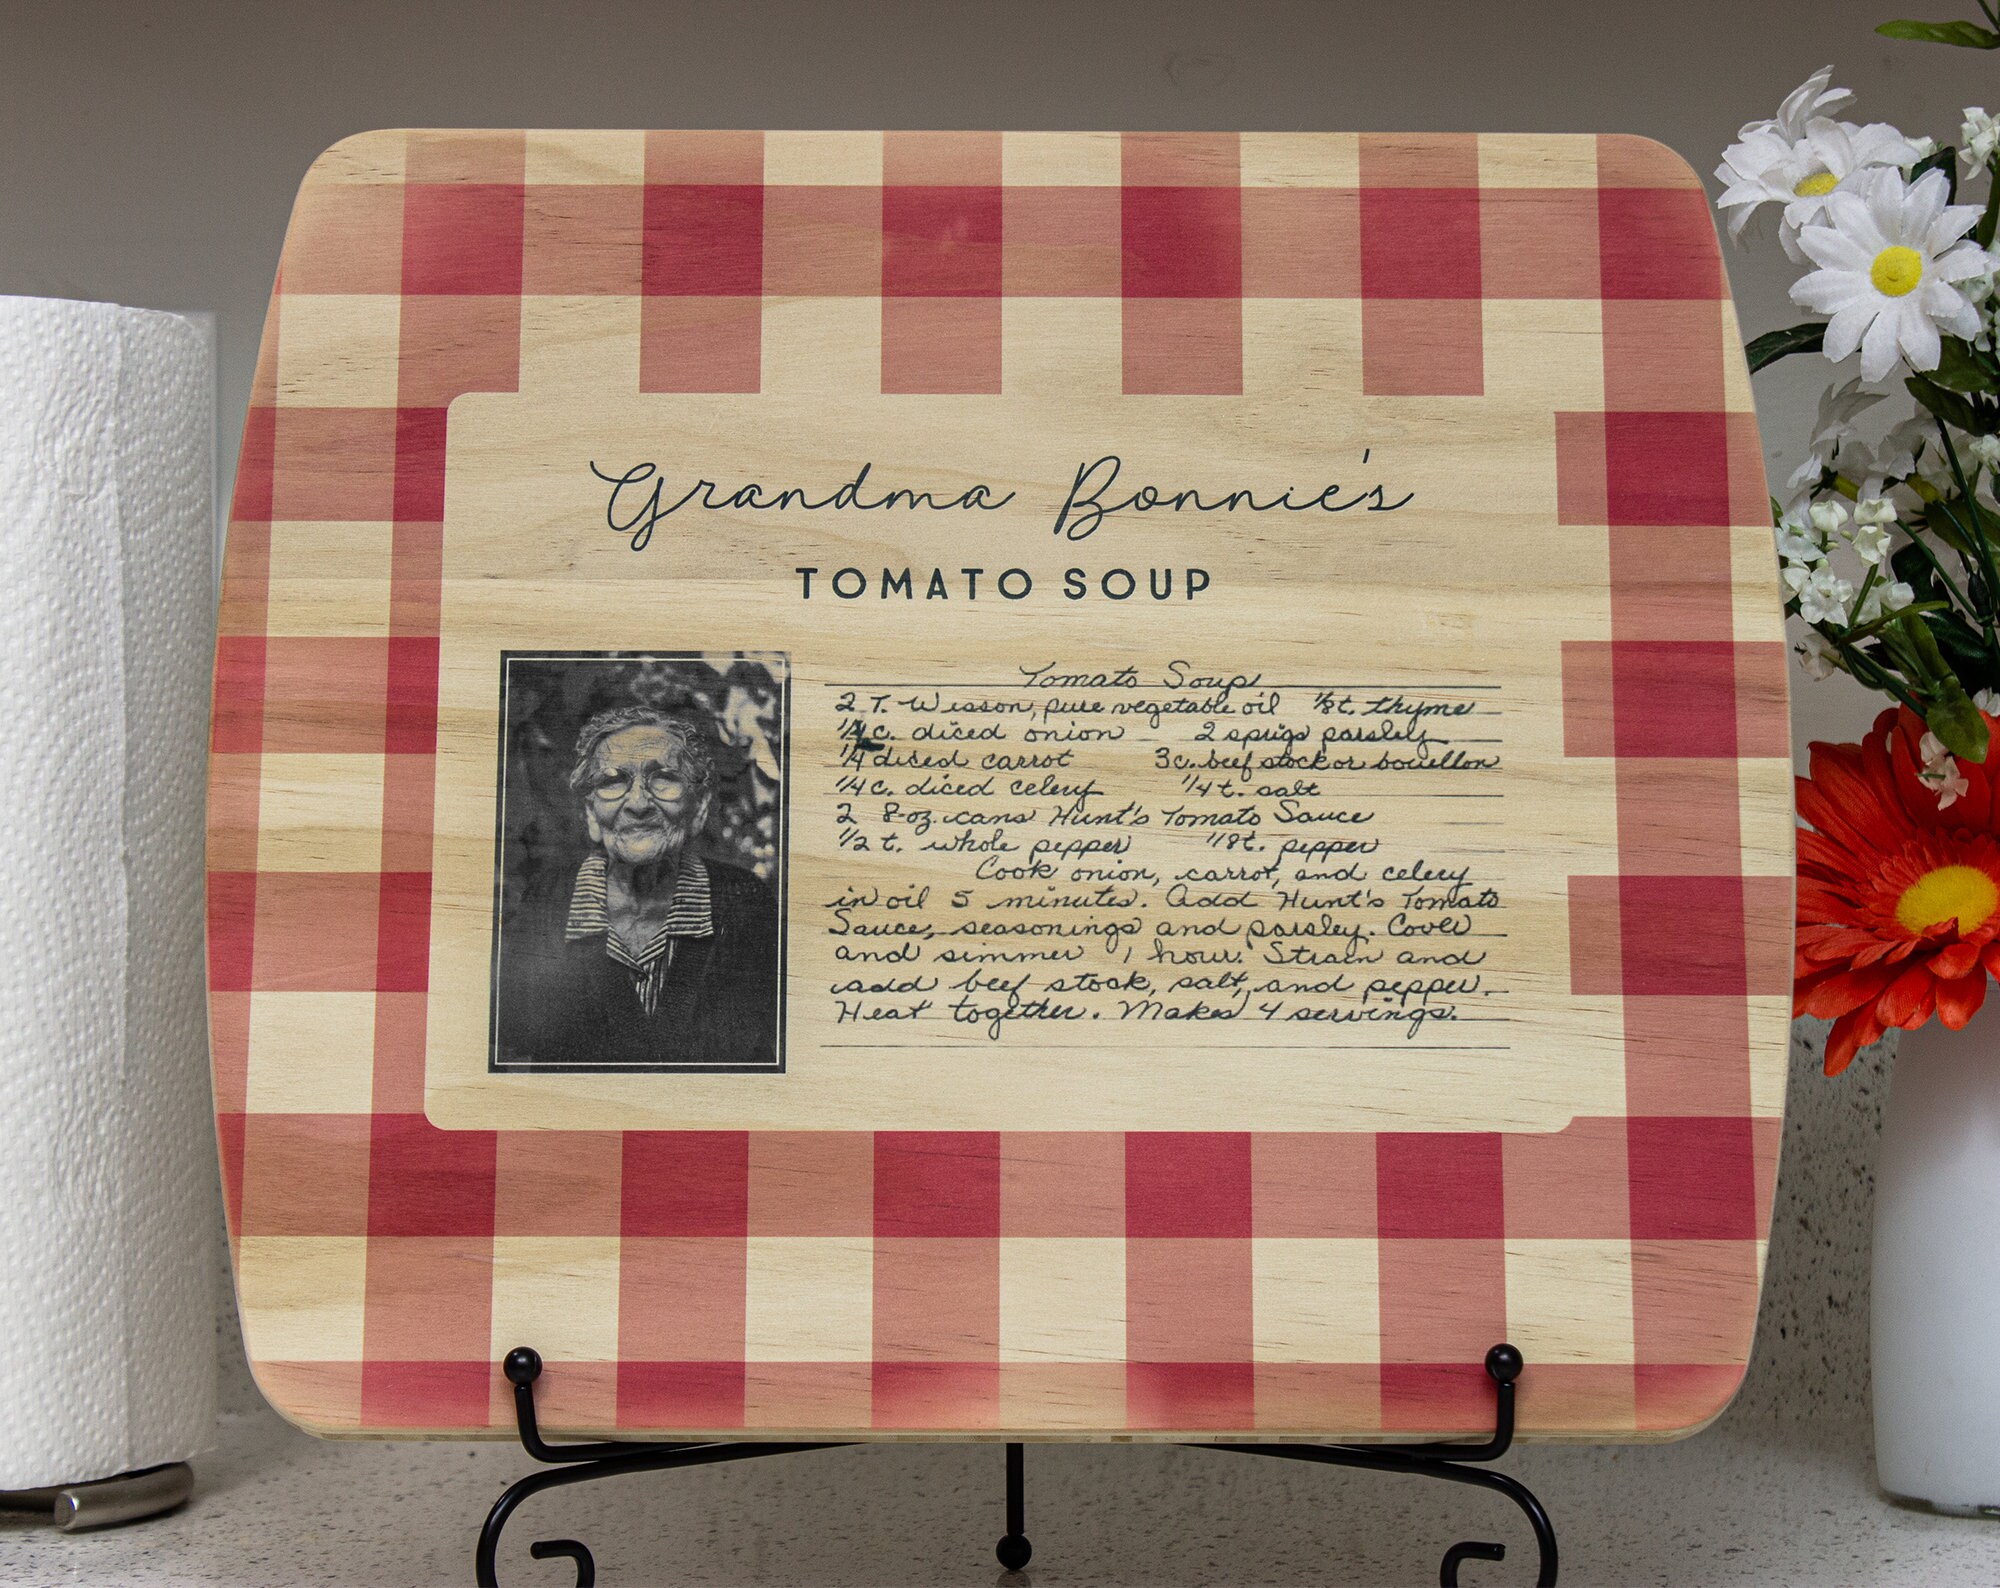 Grandma Bonnie's
TOMATO SOUP
Tomato Soup
2 T. Wesson, pure vegetable oil 1/8 t. thyme
1/4 c. diced onion 2 sprigs parsley
1/4 diced carrot 3 c. beef stock or bouellon
1/4 c. diced celery 1/4 t. salt
2 8-oz. cans Hunt's Tomato Sauce
1/2 t. whole pepper 1/8 t. pepper
Cook onion, carrot, and celery
in oil 5 minutes. Add Hunt's Tomato
Sauce, seasonings and parsley. Cover
and simmer 1 hour. Strain and
add beef stock, salt, and pepper.
Heat together. Makes 4 servings.